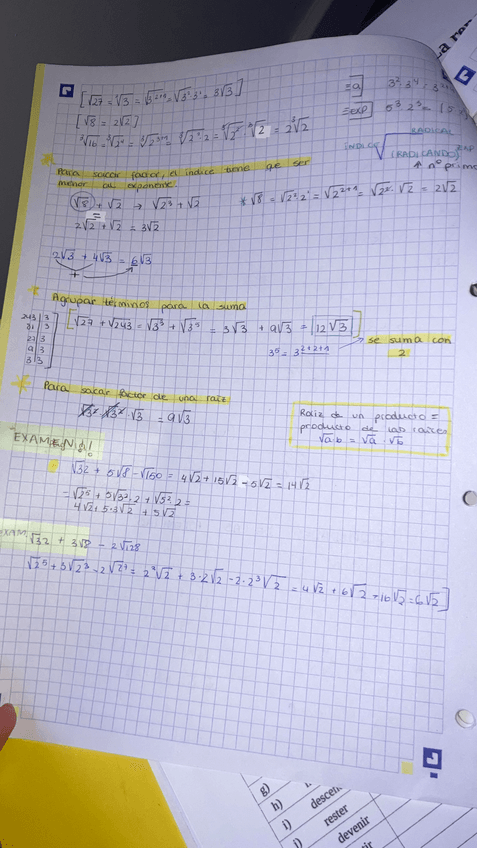 [√27 = √3 = √3²⁺¹ = √3²·3¹ = 3√3]
=a] 3²·3⁴ = 3
[√8 = 2√2]
=exp] 5³·2³ = (5
³√16 = ³√2⁴ = ³√2³⁺¹ = ³√2³·2 = ³√2³ ³√2 = 2³√2
RADICAL
INDICE √(RADICANDO) EXP
↑ nº primo
* Para sacar factor, el indice tiene que ser
menor al exponente
√8 + √2 → √2³ + √2
* √8 = √2²·2¹ = √2²⁺¹ = √2²·√2 = 2√2
=
2√2 + √2 = 3√2
2√3 + 4√3 = 6√3
+
* Agrupar términos para la suma
243 | 3
81 | 3
27 | 3
9 | 3
3 | 3
[√27 + √243 = √3³ + √3⁵ = 3√3 + 9√3 = 12√3]
3⁵ = 3²⁺²⁺¹
→ se suma con
2
* Para sacar factor de una raíz
√3²·√3²·√3 = 9√3
Raíz de un producto =
producto de las raíces
√a·b = √a · √b
EXAMEN!
√32 + 5√8 - √150 = 4√2 + 15√2 - 5√2 = 14√2
= √2⁵ + 5√3²·2 + √5²·2 =
4√2 + 5·3√2 + 5√2
EXAM
√32 + 3√8 - 2√128
√2⁵ + 3√2³ - 2√2⁷ = 2²√2 + 3·2√2 - 2·2³√2 = 4√2 + 6√2 - 16√2 = 6√2]
g)
h)
i) descen
rester
devenir